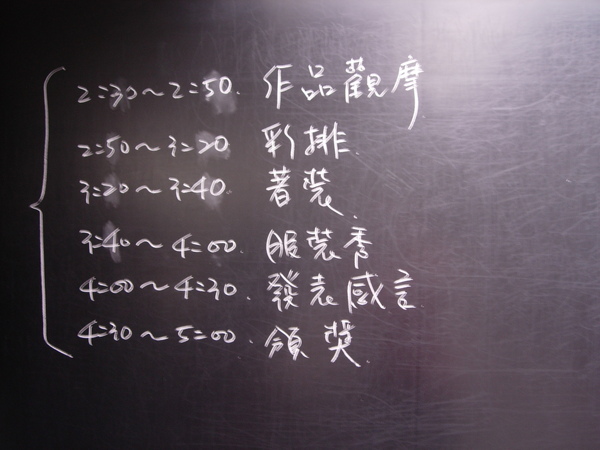 2:30~2:50. 作品觀摩
2:50~3:20 彩排.
3:20~3:40 著裝.
3:40~4:00. 服裝秀
4:00~4:30. 發表感言.
4:30~5:00. 頒獎.